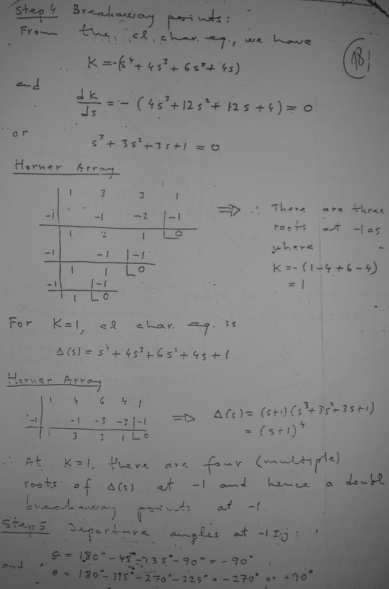 Step 4 Breakaway points:
From the cl char. eq., we have
(18)
K = -(s⁴ + 4s³ + 6s² + 4s)
and
dK/ds = - (4s³ + 12s² + 12s + 4) = 0
or
s³ + 3s² + 3s + 1 = 0
Horner Array
1 3 3 1
-1 | -1 -2 | -1
1 2 1 | 0
-1 | -1 | -1
1 1 | 0
-1 | -1
1 | 0
⇒ ∴ There are three
roots at -1 = s
where
K = - (1-4+6-4)
= 1
For K=1, cl char. eq. is
Δ(s) = s⁴ + 4s³ + 6s² + 4s + 1
Horner Array
1 4 6 4 1
-1 | -1 -3 -3 | -1
1 3 3 1 | 0
⇒ Δ(s) = (s+1)(s³+3s²+3s+1)
= (s+1)⁴
∴ At K=1, there are four (multiple)
roots of Δ(s) at -1 and hence a doubl
breakaway points at -1.
Step 5 Departure angles at -1±j:
θ = 180° - 45° - 135° - 90° = -90°
and θ = 180° - 315° - 270° - 225° = -270° or +90°